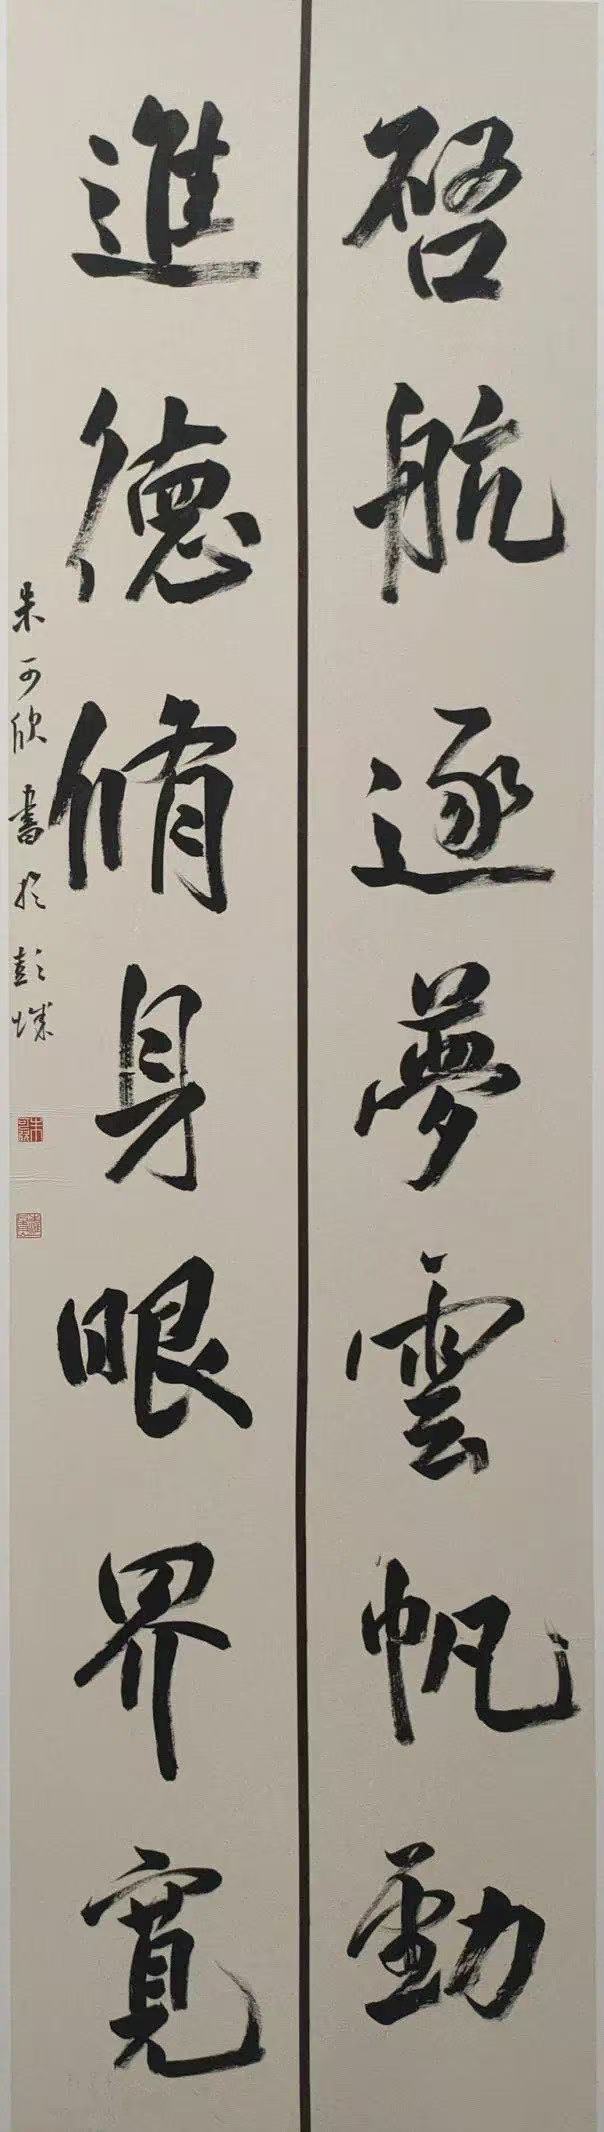 啓航逐夢雲帆勁
進德脩身眼界寬
朱可欣書於彭城